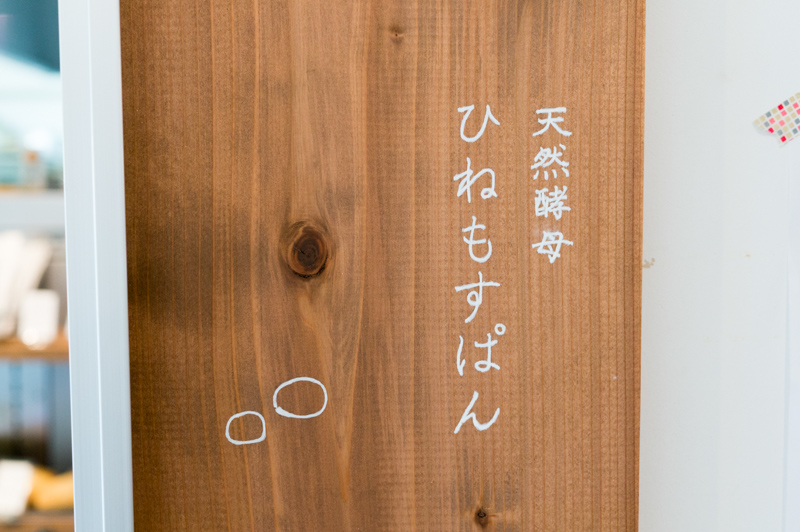 天然酵母
ひねもすぱん